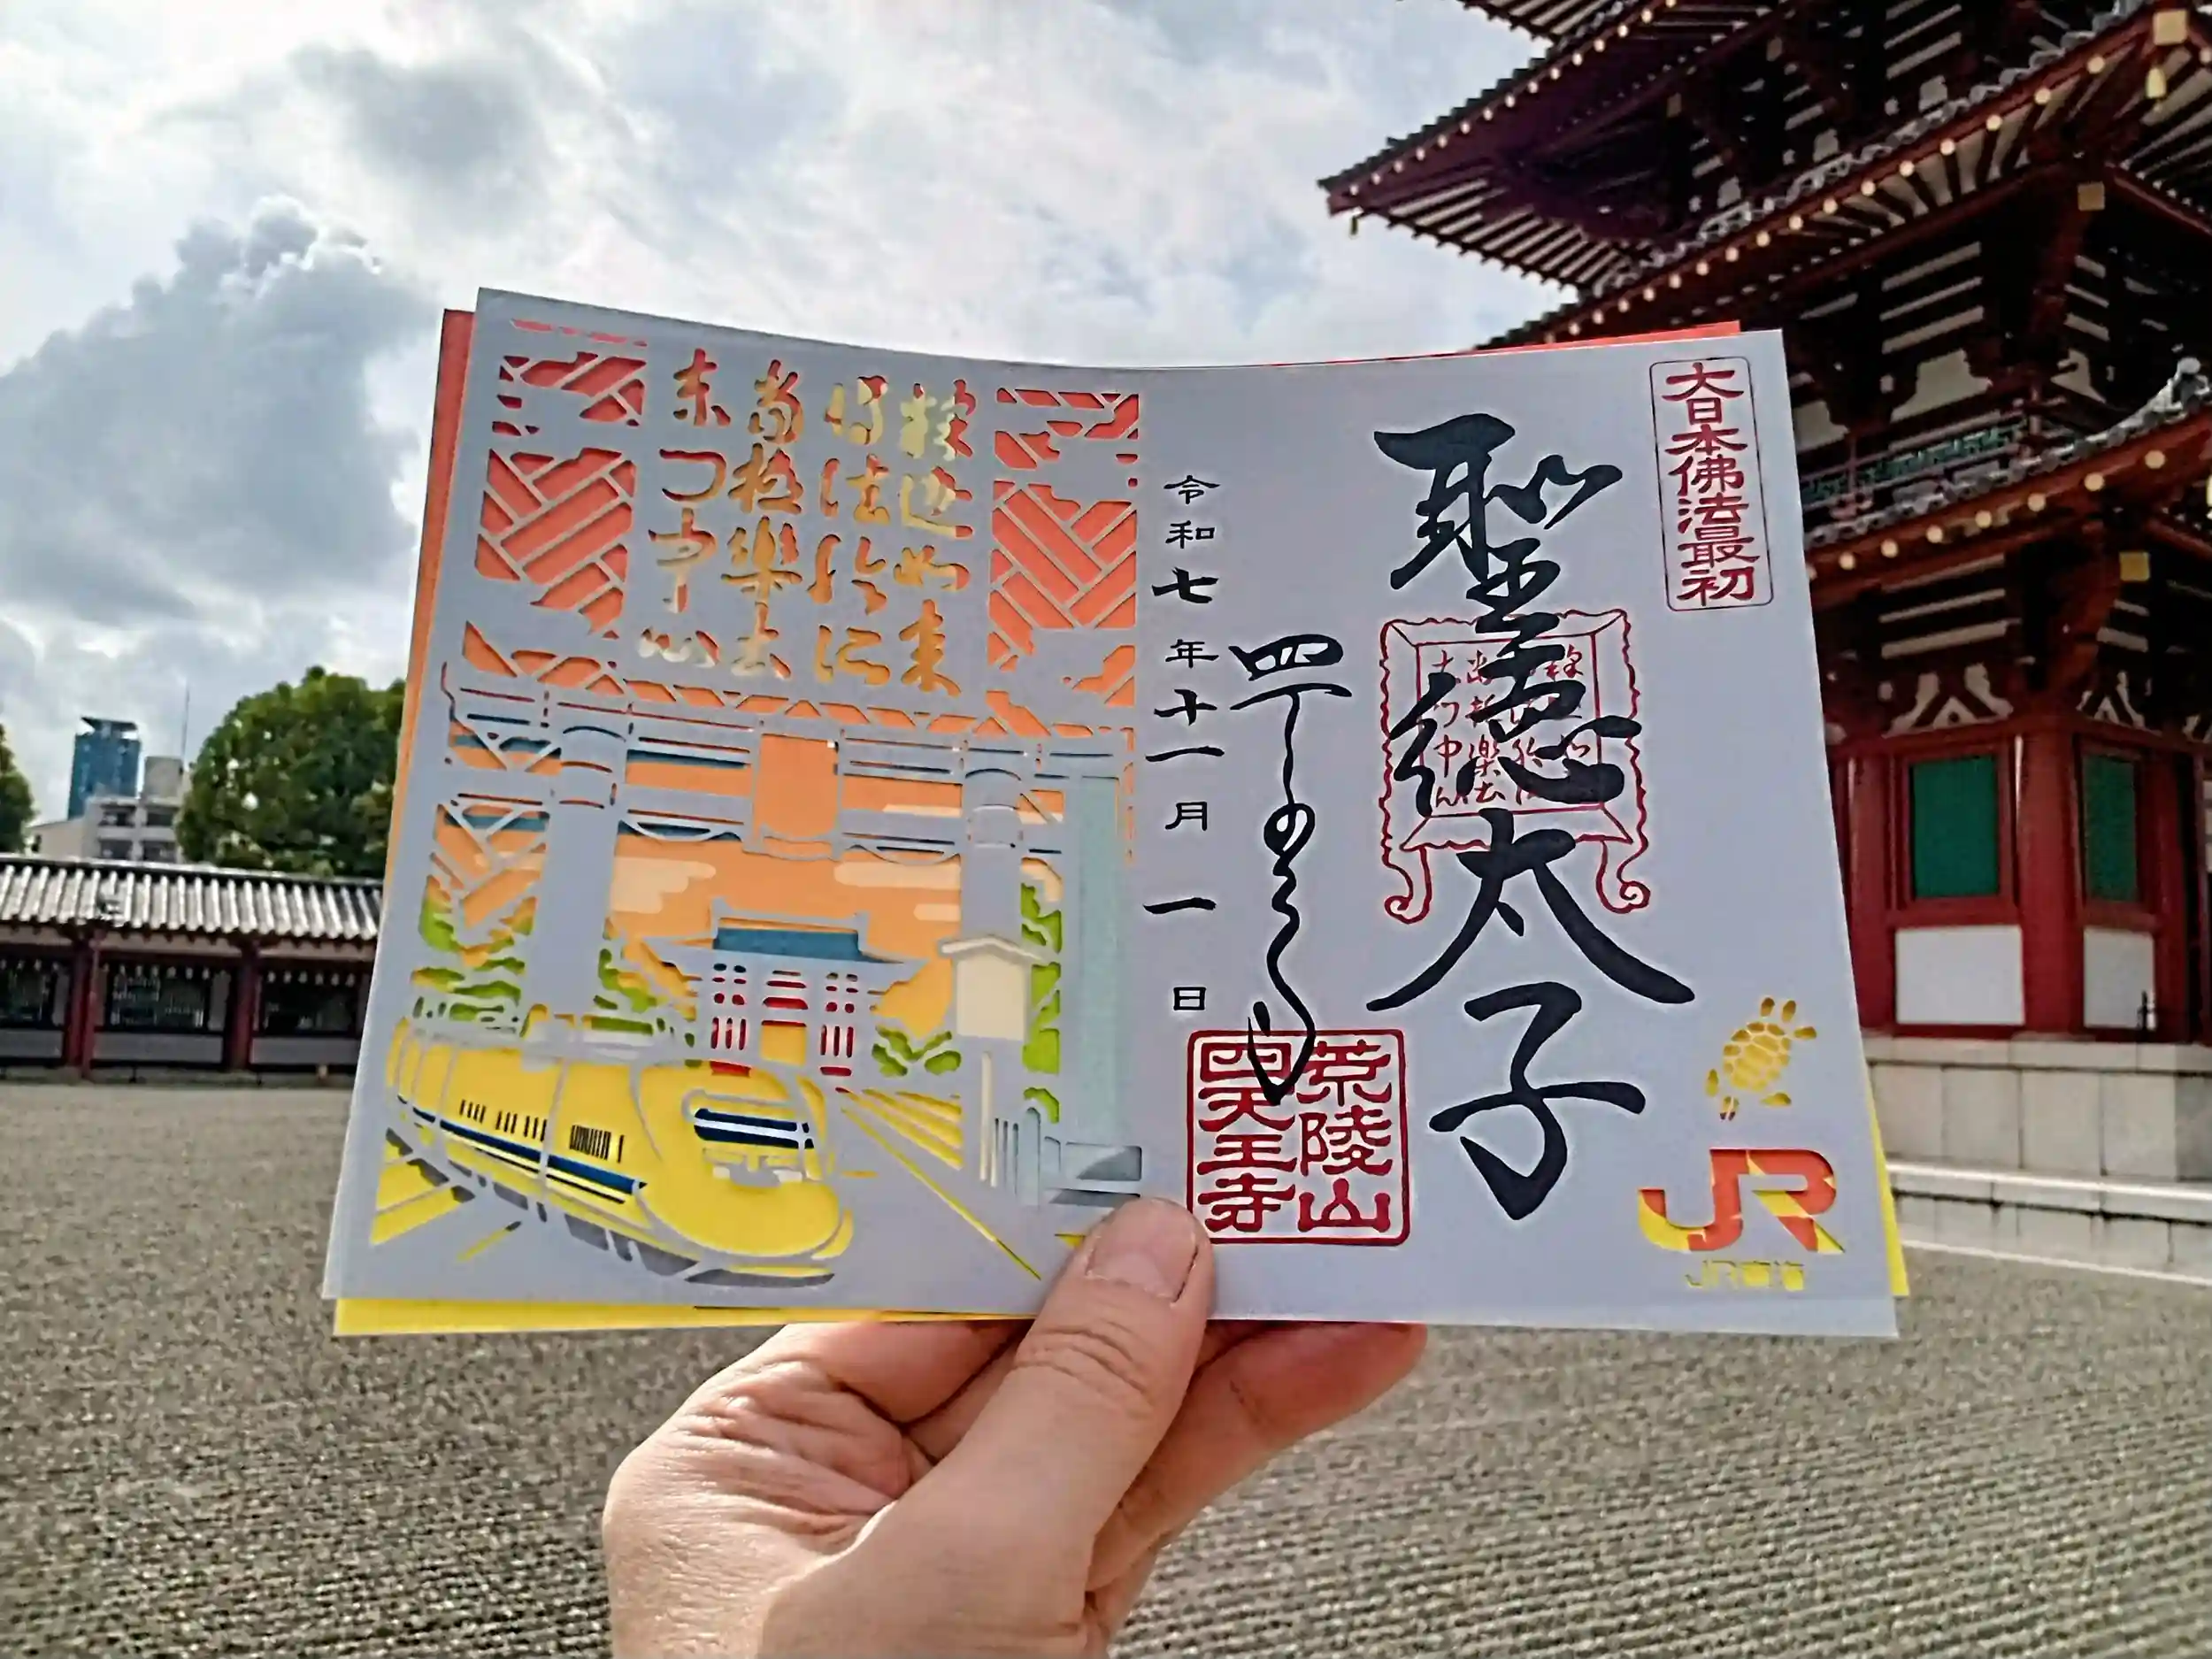 大日本佛法最初
聖徳太子
令和七年十一月一日
荒陵山
四天王寺
JR
JR東海
釈迦如来
転法輪所
当極楽土
東門中心